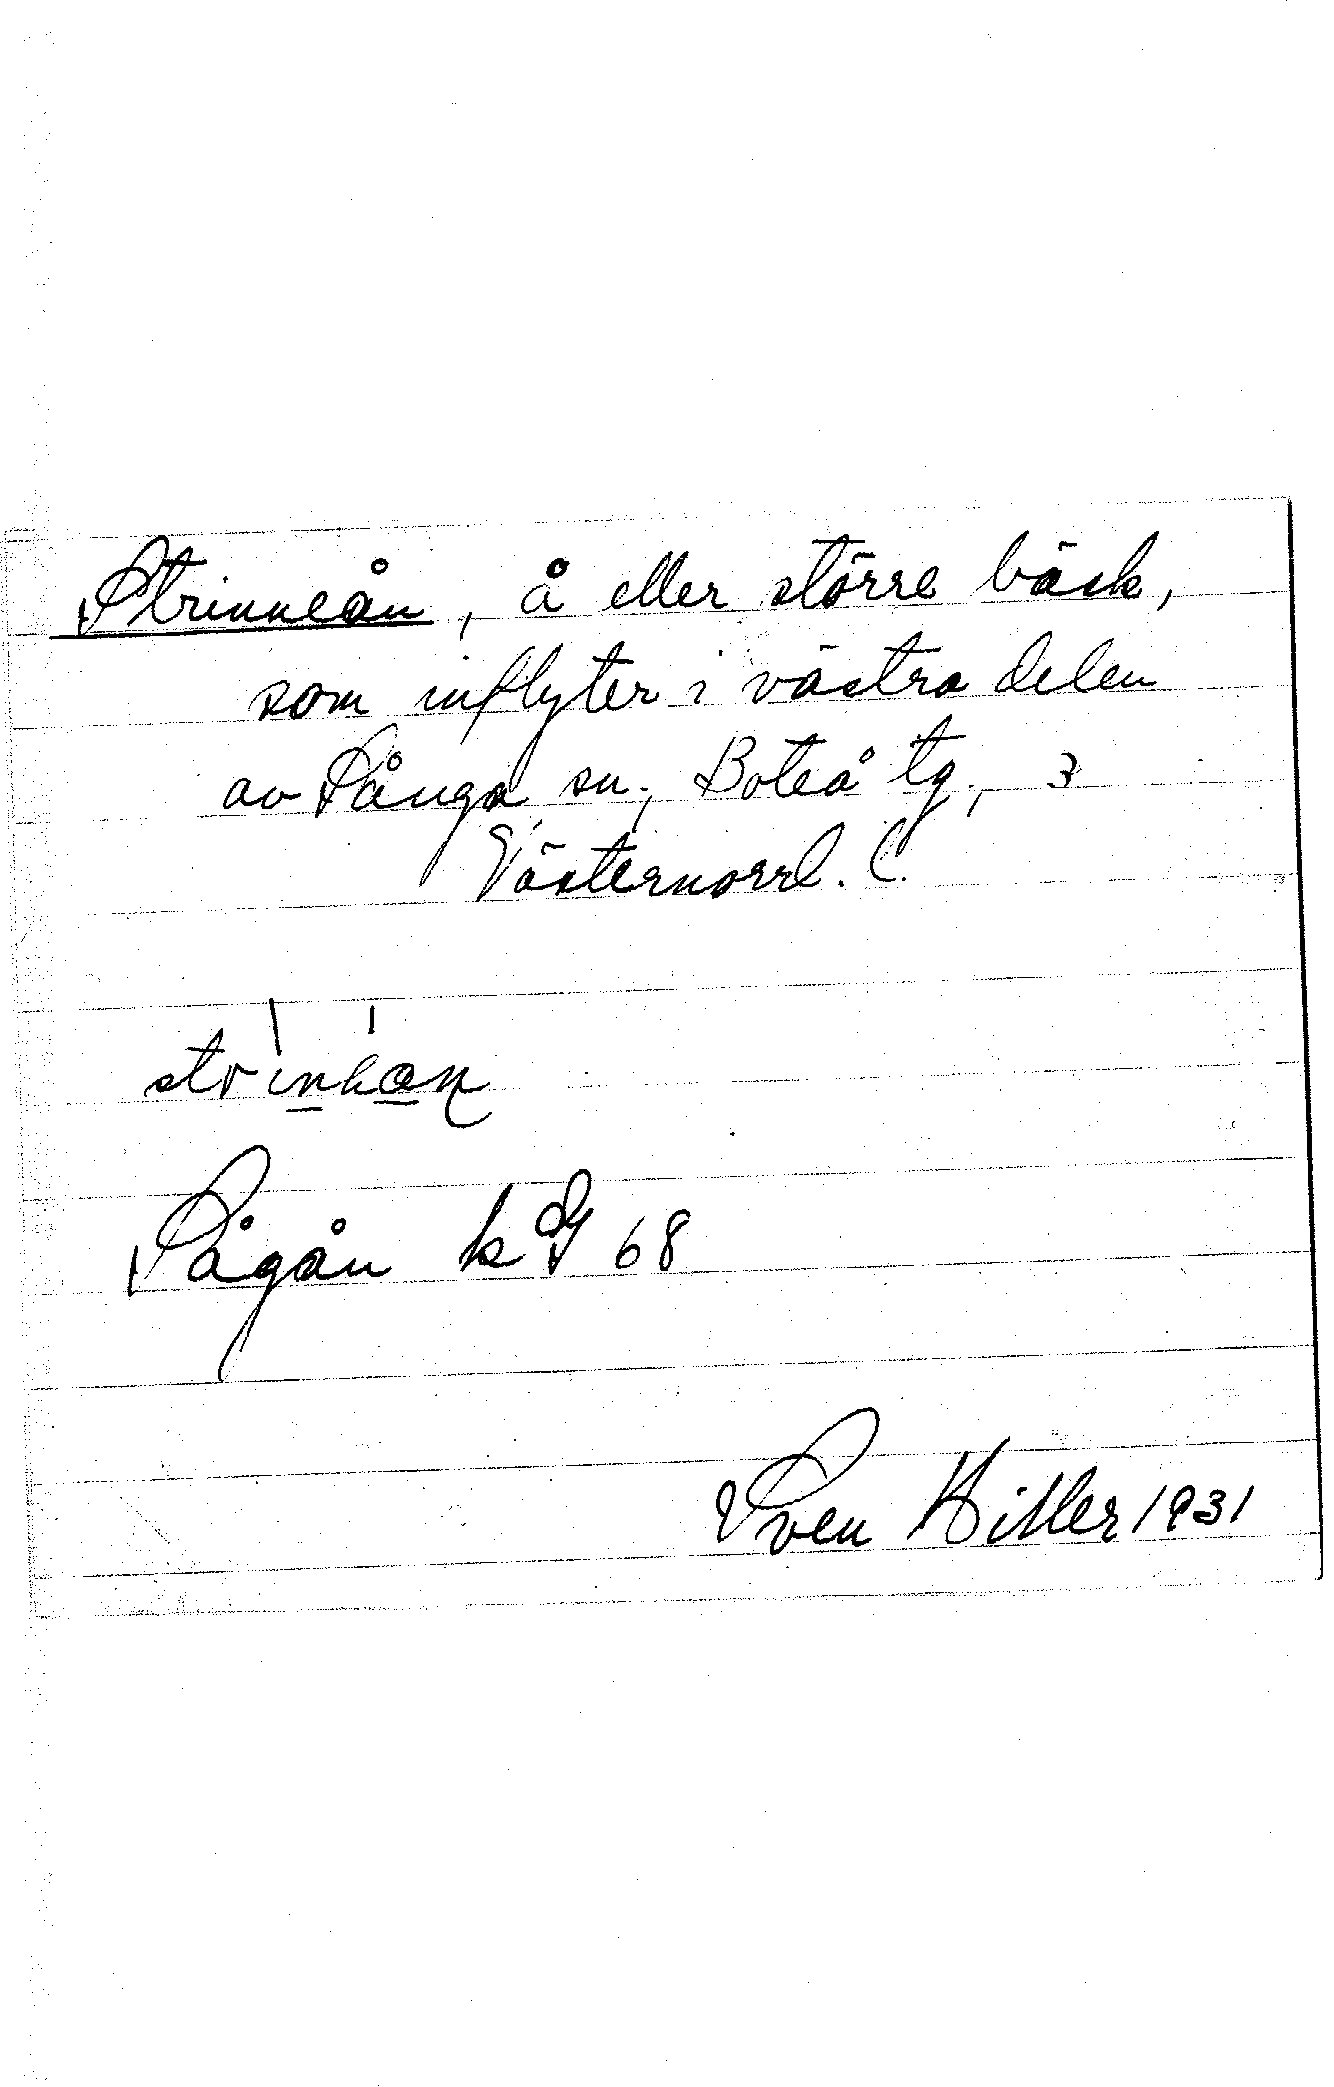 Strinneån, å eller större bäck,
som inflyter i västra delen
av Sånga sn., Boteå tg., 3
Västernorrl. l.
strinhan
Sågån k 68
Sven Hiller 1931